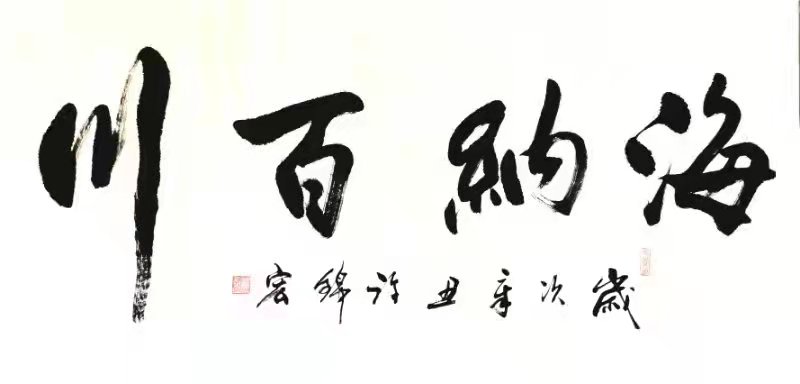 海納百川
歲次辛丑許錦宏